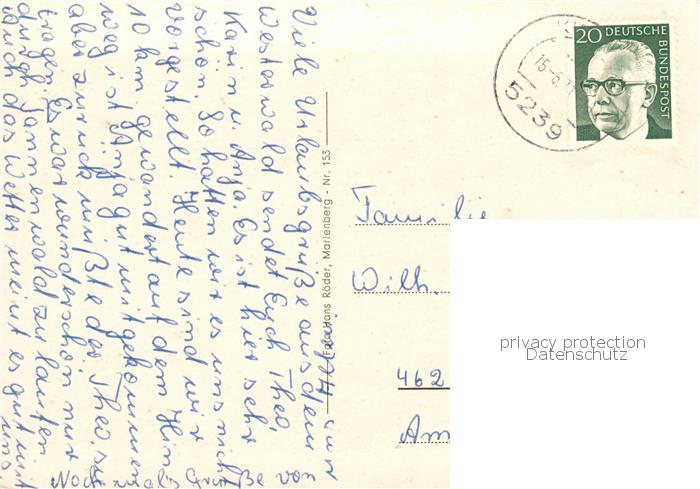 Viele Urlaubsgrüße aus dem
Westerwald sendet Euch Theo,
Karin u. Anja. Es ist hier sehr
schön. So hatten wir es uns nicht
vorgestellt. Heute sind wir
10 km gewandert auf dem Hin-
weg ist Anja gut mitgekommen
aber zurück mußte der Theo sie
tragen. Es war wunderschön nur
durch Tannenwald zu laufen
Auch das Wetter meint es gut mit
uns.
Noch mals Grüße von
Foto Hans Röder, Marienberg - Nr. 153
20 DEUTSCHE
BUNDESPOST
15-6.71
5239
Familie
Wilh.
462
Am
privacy protection
Datenschutz